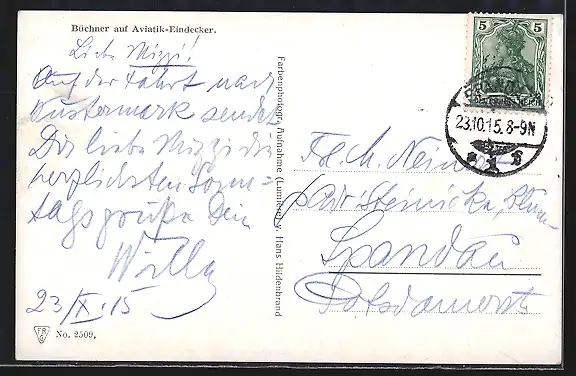 Büchner auf Aviatik-Eindecker.
Liebe Mizzi!
Auf der Fahrt nach
Wustermark sendet
Dir liebe Mizzi die
herzlichsten Sonn-
tagsgrüße Dein
Willy
23/X.15
No. 2509,
Farbenphotogr. Aufnahme (Lumière) v. Hans Hildenbrand
5 5
Deutsches Reich
23.10.15. 8-9N
Frl. M.
Spandau
Potsdamerstr